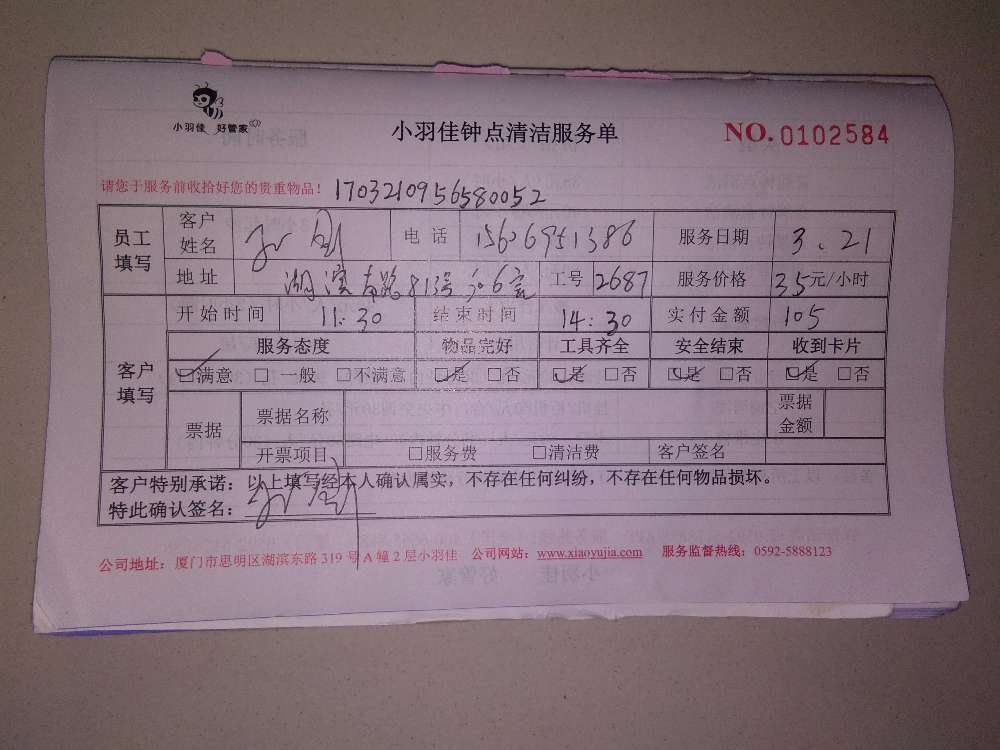 小羽佳 好管家
小羽佳钟点清洁服务单
NO.0102584
请您于服务前收拾好您的贵重物品！ 1703210956580052
员工填写 客户姓名 电话 服务日期 3.21
地址 湖滨南路81号 工号 2687 服务价格 35元/小时
客户填写 开始时间 11:30 结束时间 14:30 实付金额 105
服务态度 物品完好 工具齐全 安全结束 收到卡片
☑满意 □一般 □不满意 ☑是 □否 ☑是 □否 ☑是 □否 ☑是 □否
票据 票据名称 票据金额
开票项目 □服务费 □清洁费 客户签名
客户特别承诺：以上填写经本人确认属实，不存在任何纠纷，不存在任何物品损坏。
特此确认签名：
公司地址：厦门市思明区湖滨东路319号A幢2层小羽佳 公司网站：www.xiaoyujia.com 服务监督热线：0592-5888123